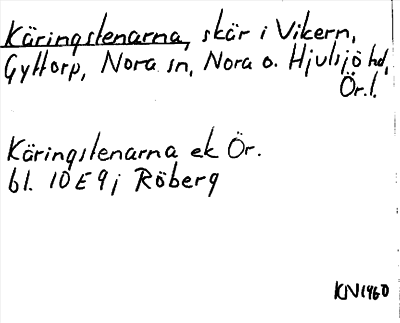 Käringstenarna, skär i Vikern,
Gyttorp, Nora sn, Nora o. Hjulsjö hd,
Ör.l.
Käringstenarna ek Ör.
bl. 10E9j Röberg
KN1960